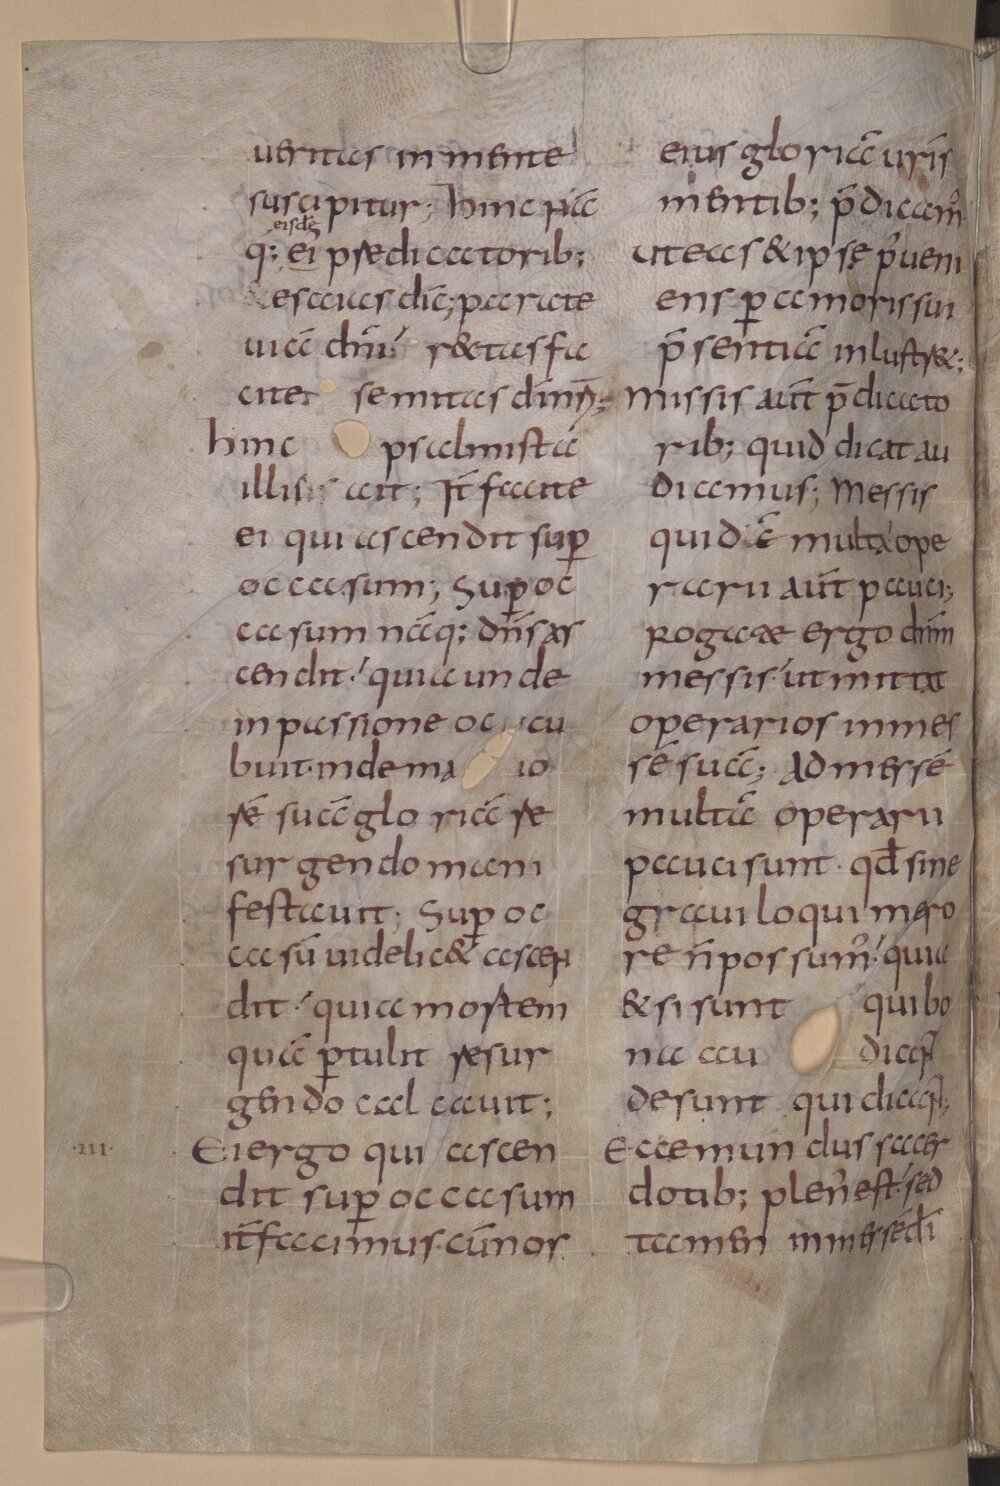 ueritas in mente
suscipitur; hinc itaq
eisdē
q; ei p̄dicatorib;
esaias dic̄; parate
uiā dn̄i rectas fa
cite semitas dī nr̄i;
hinc psalmistā
illis ait; It̄ facite
ei qui ascendit sup̱
occasum; Sup̱ oc
casum nāq; dn̄s as
cendit quia unde
in passione occu
buit inde maio
rē suā gloriā re
surgendo mani
festauit; Sup̱ oc
casū uidelic& ascen
dit quia mortem
quā ꝑtulit resur
gendo calcauit;
·III·
Ei ergo qui ascen
dit sup̱ occasum
it̄ facimus cū nos
eius gloriā ur̄is
mentib; p̄dicam̄
ut eas & ipse p̱ueni
ens ꝑ amoris sui
p̄sentiā inlustr&;
Missis aūt p̄dicato
rib; quid dicat au
diamus; Messis
quidē multa ope
rarii aūt pauci;
Rogate ergo dn̄m
messis ut mittat
operarios in mes
sē suā; Ad messē
multā operarii
pauci sunt qđ sine
graui loqui mero
re n̄ possum̄ quia
& si sunt qui bo
na audiant
desunt qui dicant;
Ecce mundus sacer
dotib; plen̄ est sed
tamen in messe dī